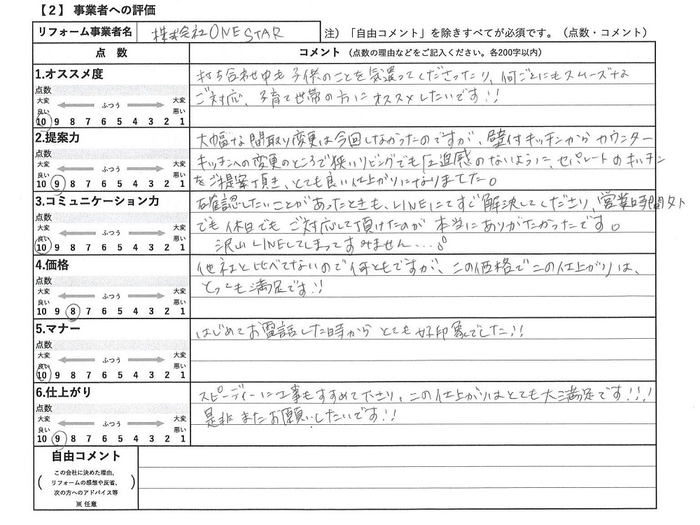 【2】事業者への評価
リフォーム事業者名 株式会社ONE STAR 注）「自由コメント」を除きすべてが必須です。（点数・コメント）
点 数 コメント（点数の理由などをご記入ください。各200字以内）
1.オススメ度
点数
大変良い ふつう 大変悪い
10 9 8 7 6 5 4 3 2 1
打ち合せ中も子供のことを気遣ってくださったり、何ごとにもスムーズな
ご対応、子育て世帯の方にオススメしたいです!!
2.提案力
点数
大変良い ふつう 大変悪い
10 9 8 7 6 5 4 3 2 1
大幅な間取り変更は今回しなかったのですが、壁付キッチンからカウンター
キッチンへの変更のところで狭いリビングでも圧迫感のないように、セパレートのキッチン
をご提案頂き、とても良い仕上がりになりました。
3.コミュニケーション力
点数
大変良い ふつう 大変悪い
10 9 8 7 6 5 4 3 2 1
確認したいことがあったときも、LINEにてすぐ解決してくださり、営業時間外
でも休日でもご対応して頂けたのが本当にありがたかったです。
沢山LINEしてしまってすみません...
4.価格
点数
大変良い ふつう 大変悪い
10 9 8 7 6 5 4 3 2 1
他社と比べてないので何ともですが、この価格でこの仕上がりは、
とっても満足です!!
5.マナー
点数
大変良い ふつう 大変悪い
10 9 8 7 6 5 4 3 2 1
はじめてお電話した時からとても好印象でした!!
6.仕上がり
点数
大変良い ふつう 大変悪い
10 9 8 7 6 5 4 3 2 1
スピーディーに工事もすすめて下さり、この仕上がりはとても大満足です!!!
是非またお願いしたいです!!
自由コメント
この会社に決めた理由、
リフォームの感想や反省、
次の方へのアドバイス等
※ 任意